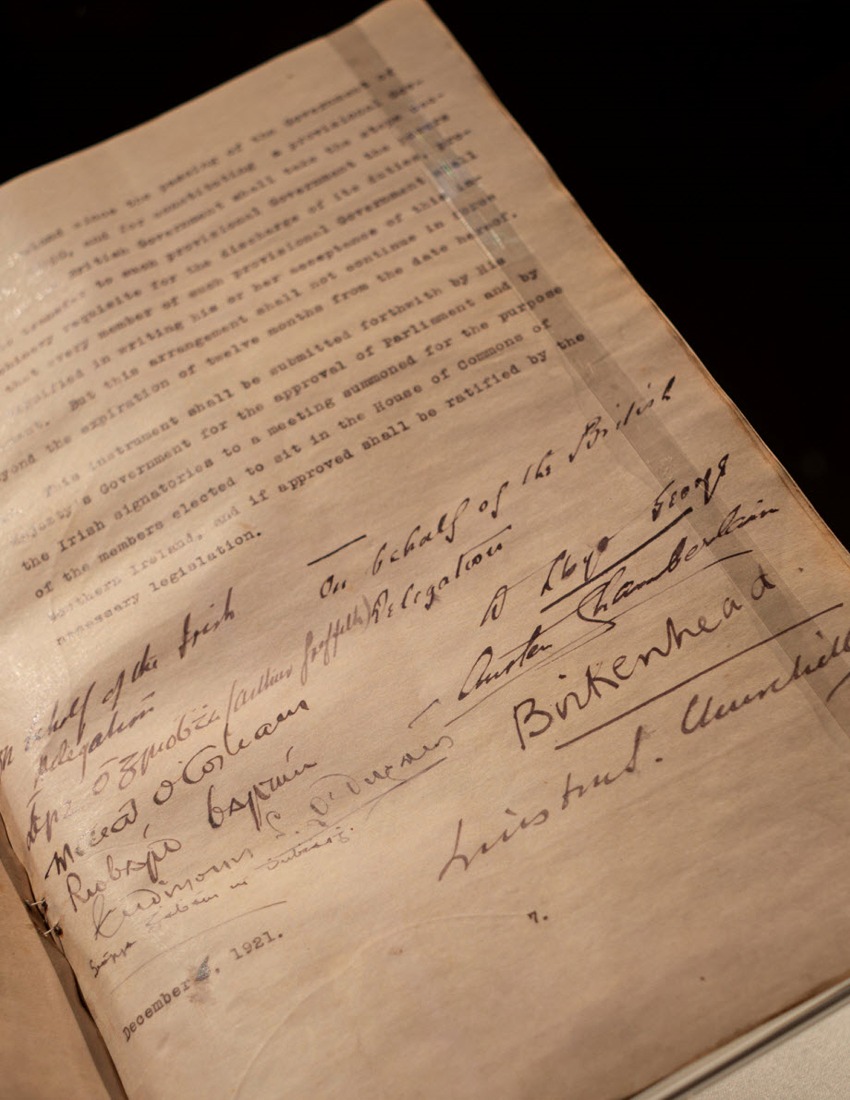 since the passing of the Government of
and for constituting a provisional Gov-
British Government shall take the steps nec-
transfer to such provisional Government the powers
requisite for the discharge of its duties, pro-
that every member of such provisional Government shall
signified in writing his or her acceptance of this in-
But this arrangement shall not continue in force
yond the expiration of twelve months from the date hereof.
This instrument shall be submitted forthwith by His
Majesty's Government for the approval of Parliament and by
the Irish signatories to a meeting summoned for the purpose
of the members elected to sit in the House of Commons of
Southern Ireland, and if approved shall be ratified by the
necessary legislation.
On behalf of the British
Delegation
D Lloyd George
Austen Chamberlain
Birkenhead.
Winston S. Churchill
On behalf of the Irish
Delegation
Art Ó Gríobhtha (Arthur Griffith)
Micheál Ó Coileáin
Riobárd Bartún
Seórsa Gabháin uí Dubhthaigh
December 6, 1921.
7.